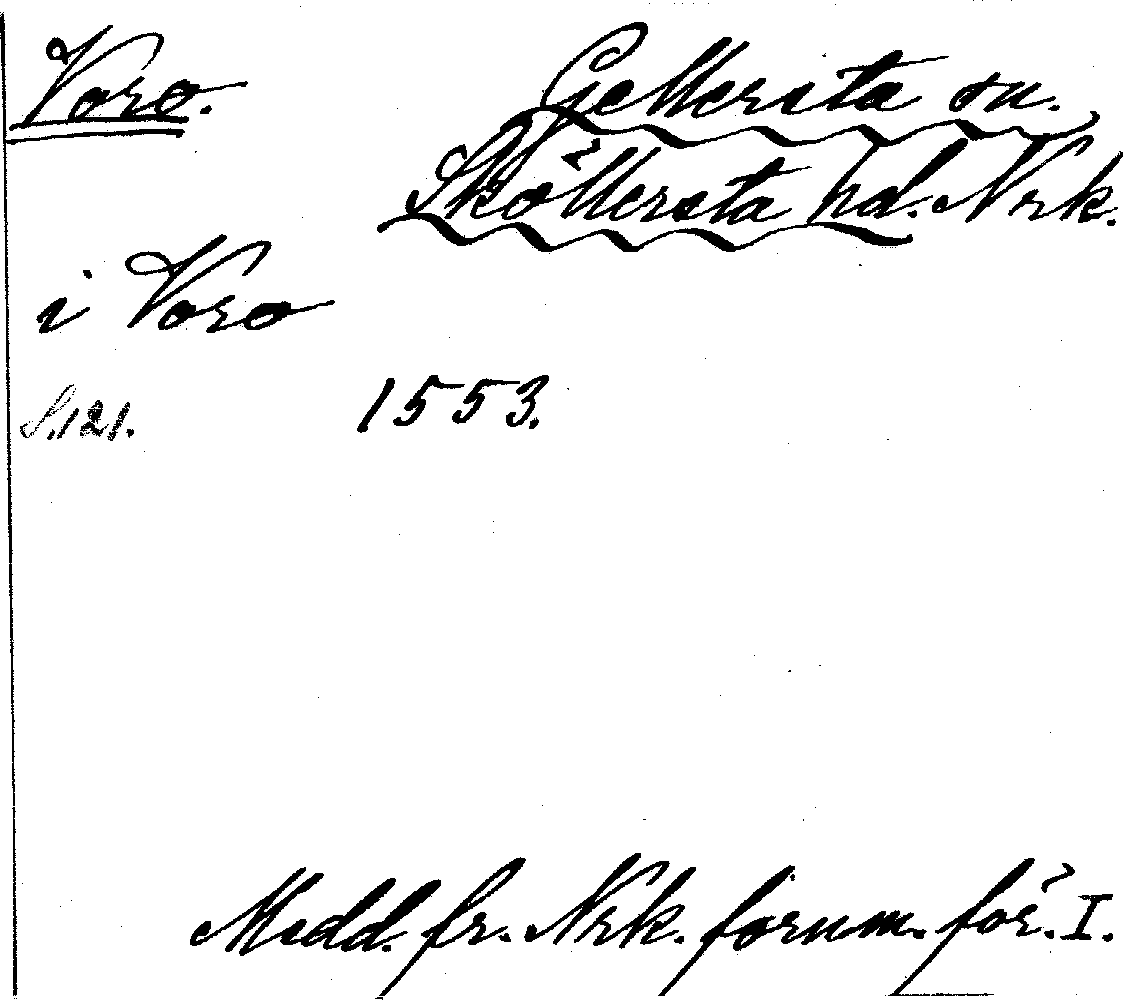 Voro. Gellersta sn.
Sköllersta hd. Nrk.
i Voro
S. 121. 1553.
Medd. fr. Nrk. fornm. för. I.